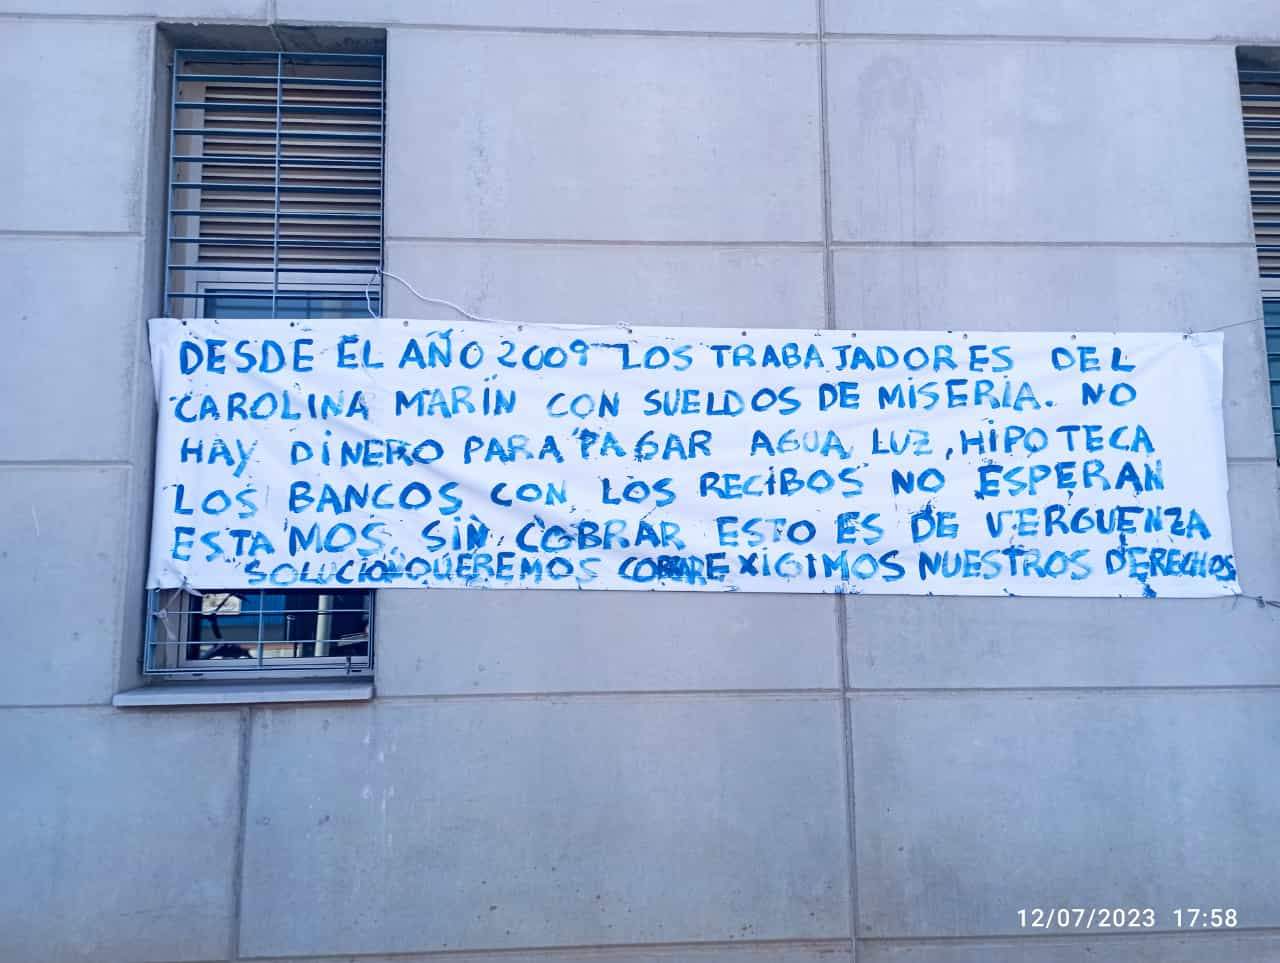 DESDE EL AÑO 2009 LOS TRABAJADORES DEL
CAROLINA MARÍN CON SUELDOS DE MISERIA. NO
HAY DINERO PARA PAGAR AGUA, LUZ, HIPOTECA
LOS BANCOS CON LOS RECIBOS NO ESPERAN
ESTAMOS SIN COBRAR ESTO ES DE VERGUENZA
SOLUCION QUEREMOS COBRAR EXIGIMOS NUESTROS DERECHOS
12/07/2023 17:58